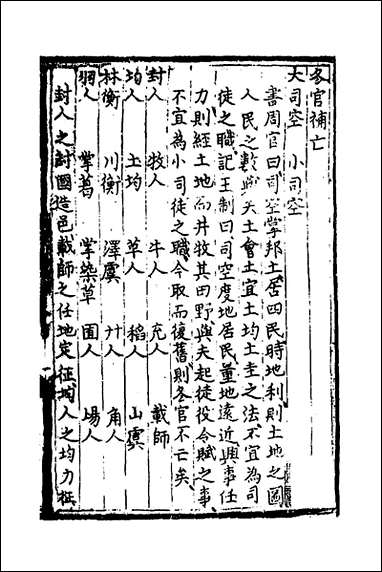 冬官補亡
大司空　小司空
書周官曰司空掌邦土居四民時地利則土地之圖
人民之數與夫土會土宜土均土圭之法不宜為司
徒之職記王制曰司空度地居民量地遠近興事任
力則經土地而井牧其田野與夫起徒役令賦之事
不宜為小司徒之職今取而復舊則冬官不亡矣
封人　牧人　牛人　充人　載師
均人　土均　草人　稻人　山虞
林衡　川衡　澤虞　廾人　角人
羽人　掌葛　掌染草　囿人　場人
封人之封國造邑載師之任地定征均人之均力征